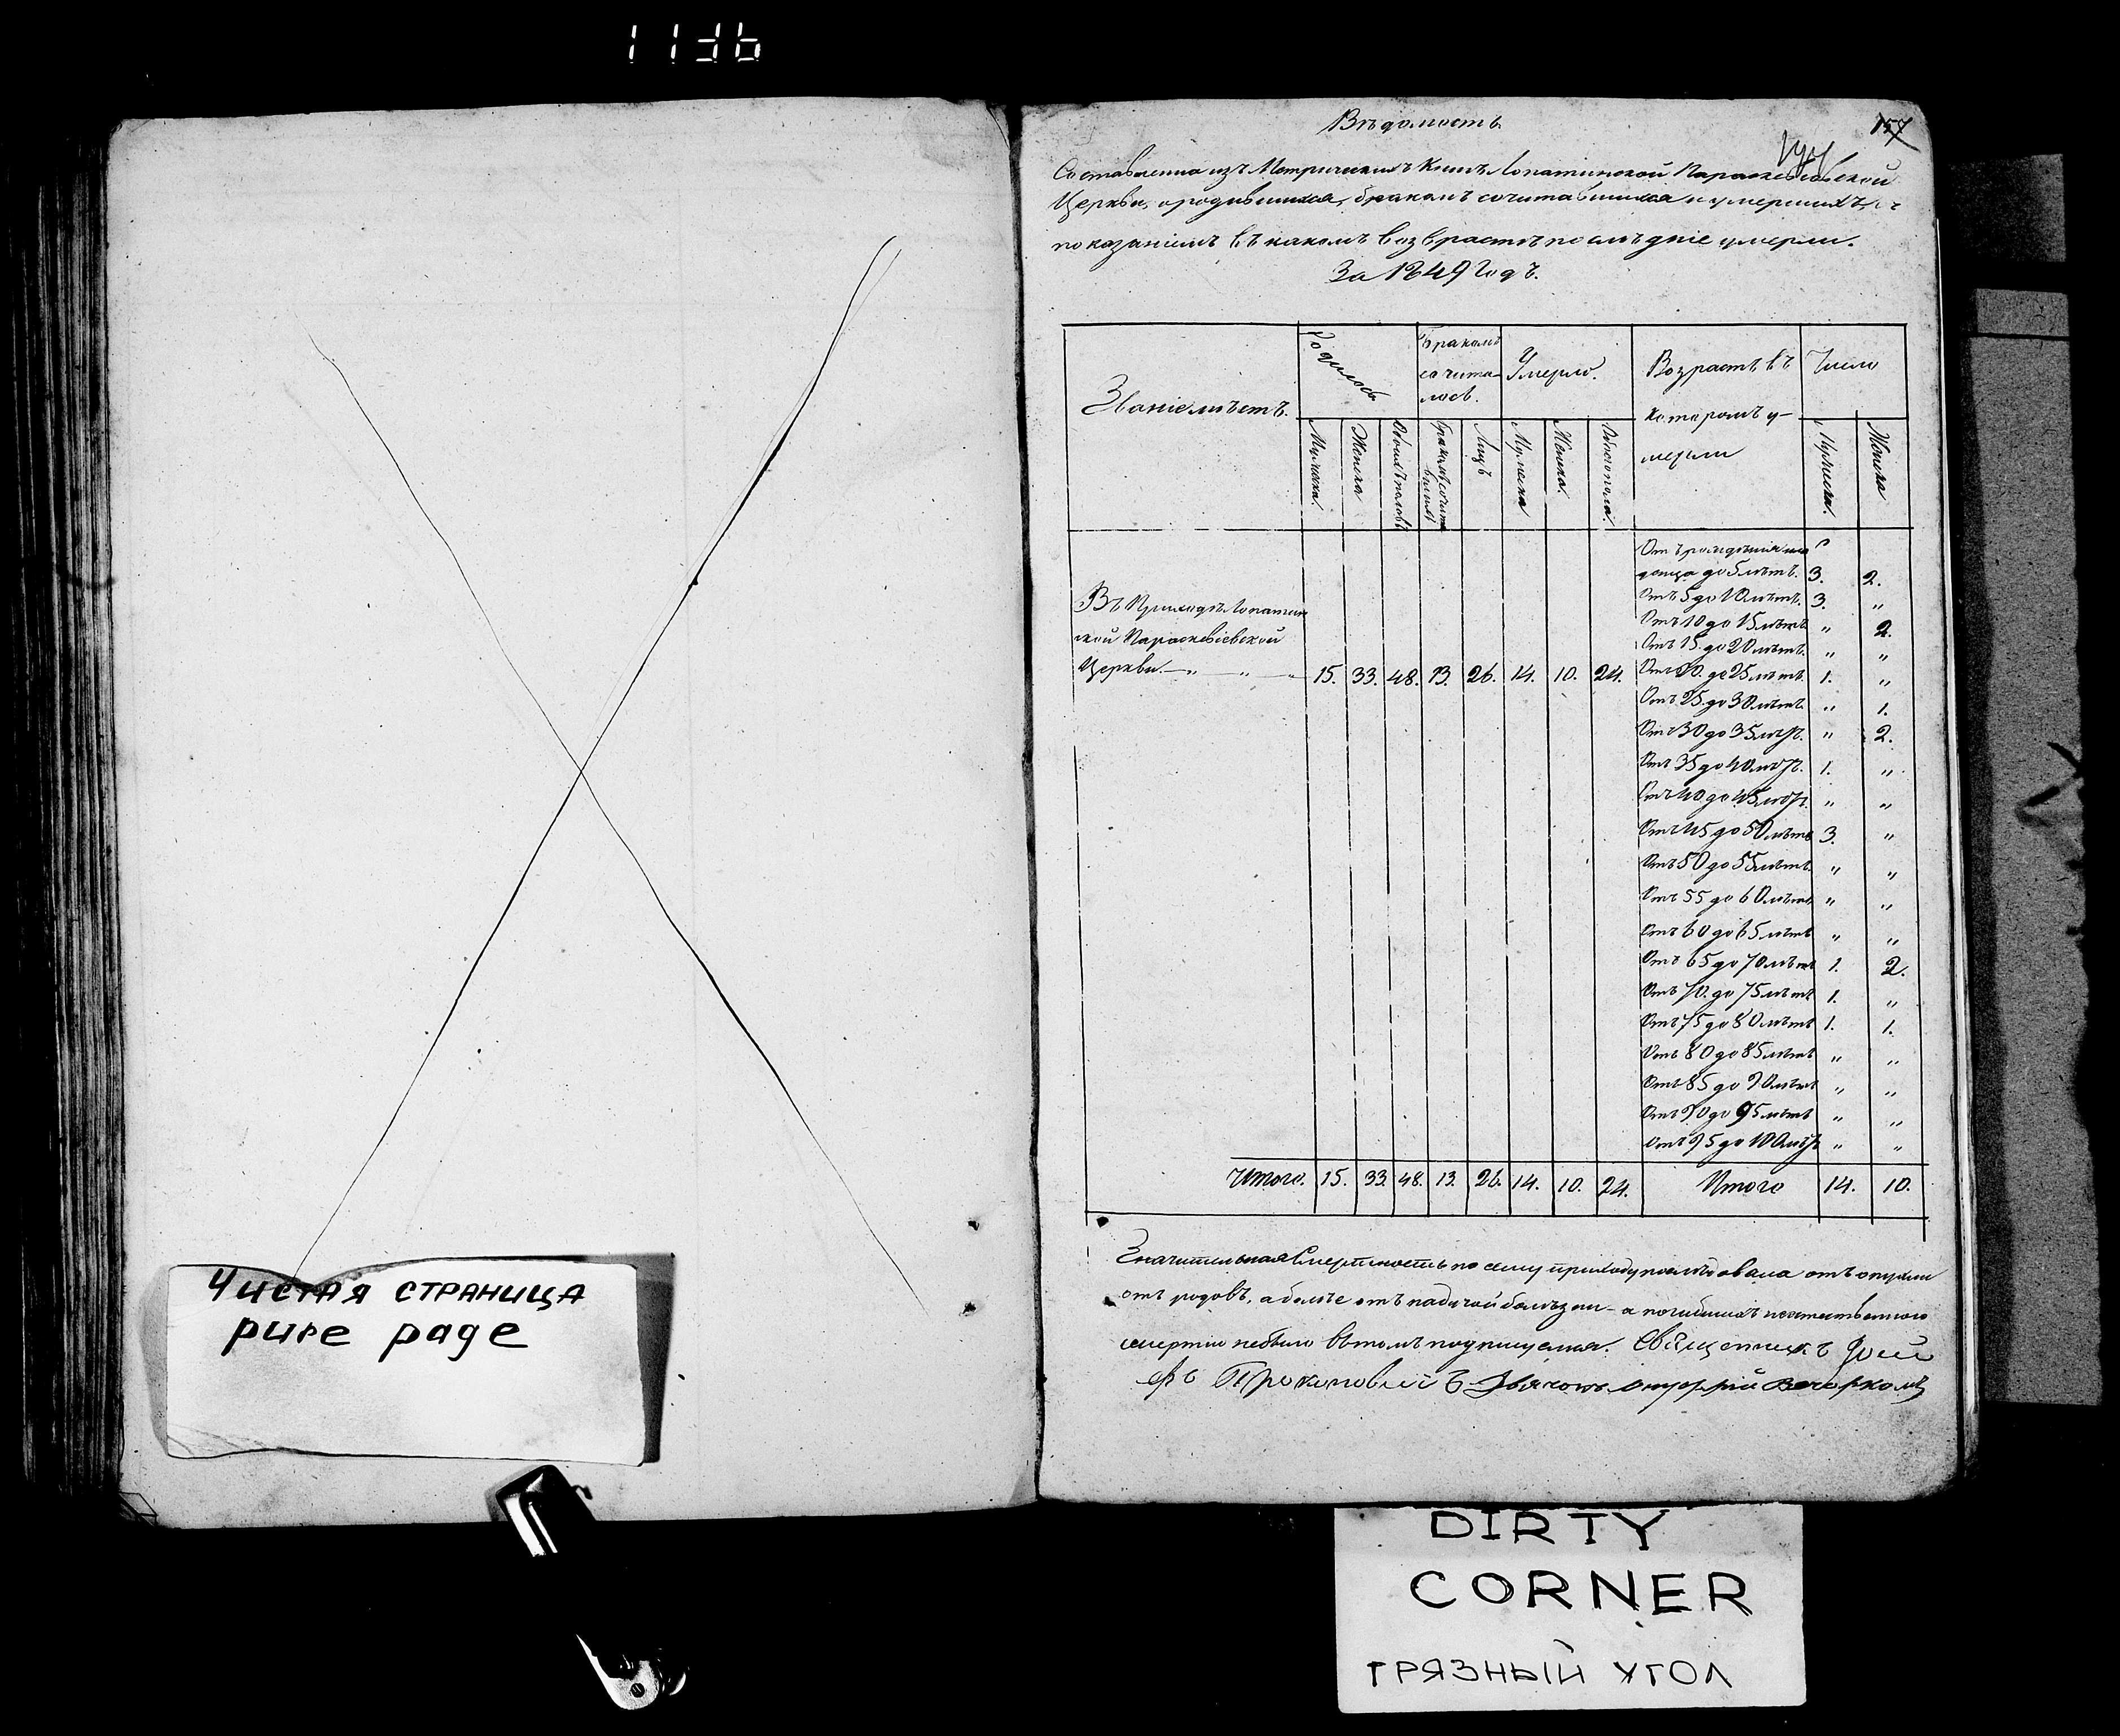 1136
Чистая страница
pure page
Вѣдомость
157
Составлена изъ Метрическихъ Книгъ Лопатинской Параскевіевской
Церкви, о родившихся, бракомъ сочитавшихся и умершихъ, съ
показаніемъ въ какомъ возврастѣ послѣдніе умерли.
За 1849 Годъ.
Званіе мѣстъ.
Родилось
Бракомъ
сочита-
лось.
Умерло.
Возрастъ въ
которомъ у-
мерли
Число
Мужска.
Женска
Обоихъ половъ
Лицъ
Мужска
Женска.
Обоего пола.
Мужска.
Женска
Въ Приходѣ Лопатин
ской Параскевіевской
Церкви. — „ — „ — 15. 33. 48. 13. 26. 14. 10. 24.
Отъ рожденія
до 5 лѣтъ. 3. 2.
Отъ 5 до 10 лѣтъ. 3. „
Отъ 10 до 15 лѣтъ „ 2.
Отъ 15. до 20 лѣтъ. „ „
Отъ 20. до 25 лѣтъ. 1. „
Отъ 25 до 30 лѣтъ. „ 1.
Отъ 30 до 35 лѣтъ. „ 2.
Отъ 35 до 40 лѣтъ. 1. „
Отъ 40 до 45 лѣтъ. „ „
Отъ 45 до 50 лѣтъ 3. „
Отъ 50 до 55 лѣтъ. „ „
Отъ 55 до 60 лѣтъ „ „
Отъ 60 до 65 лѣтъ „ „
Отъ 65 до 70 лѣтъ 1. 2.
Отъ 70. до 75 лѣтъ 1. „
Отъ 75 до 80 лѣтъ 1. 1.
Отъ 80 до 85 лѣтъ „ „
Отъ 85 до 90 лѣтъ „ „
Отъ 90 до 95 лѣтъ „ „
Отъ 95 до 100 лѣтъ „ „
Итого. 15. 33. 48. 13. 26. 14. 10. 24. Итого 14. 10.
Значительная Смертность по сему приходу послѣдовала отъ
отъ родовъ, а болѣе отъ болѣзни – а погибшихъ неестественного
смертію небыло въ томъ подписуемся. Священникъ
Прокоповичъ Дьячокъ Онуфрій
DIRTY
CORNER
ГРЯЗНЫЙ УГОЛ